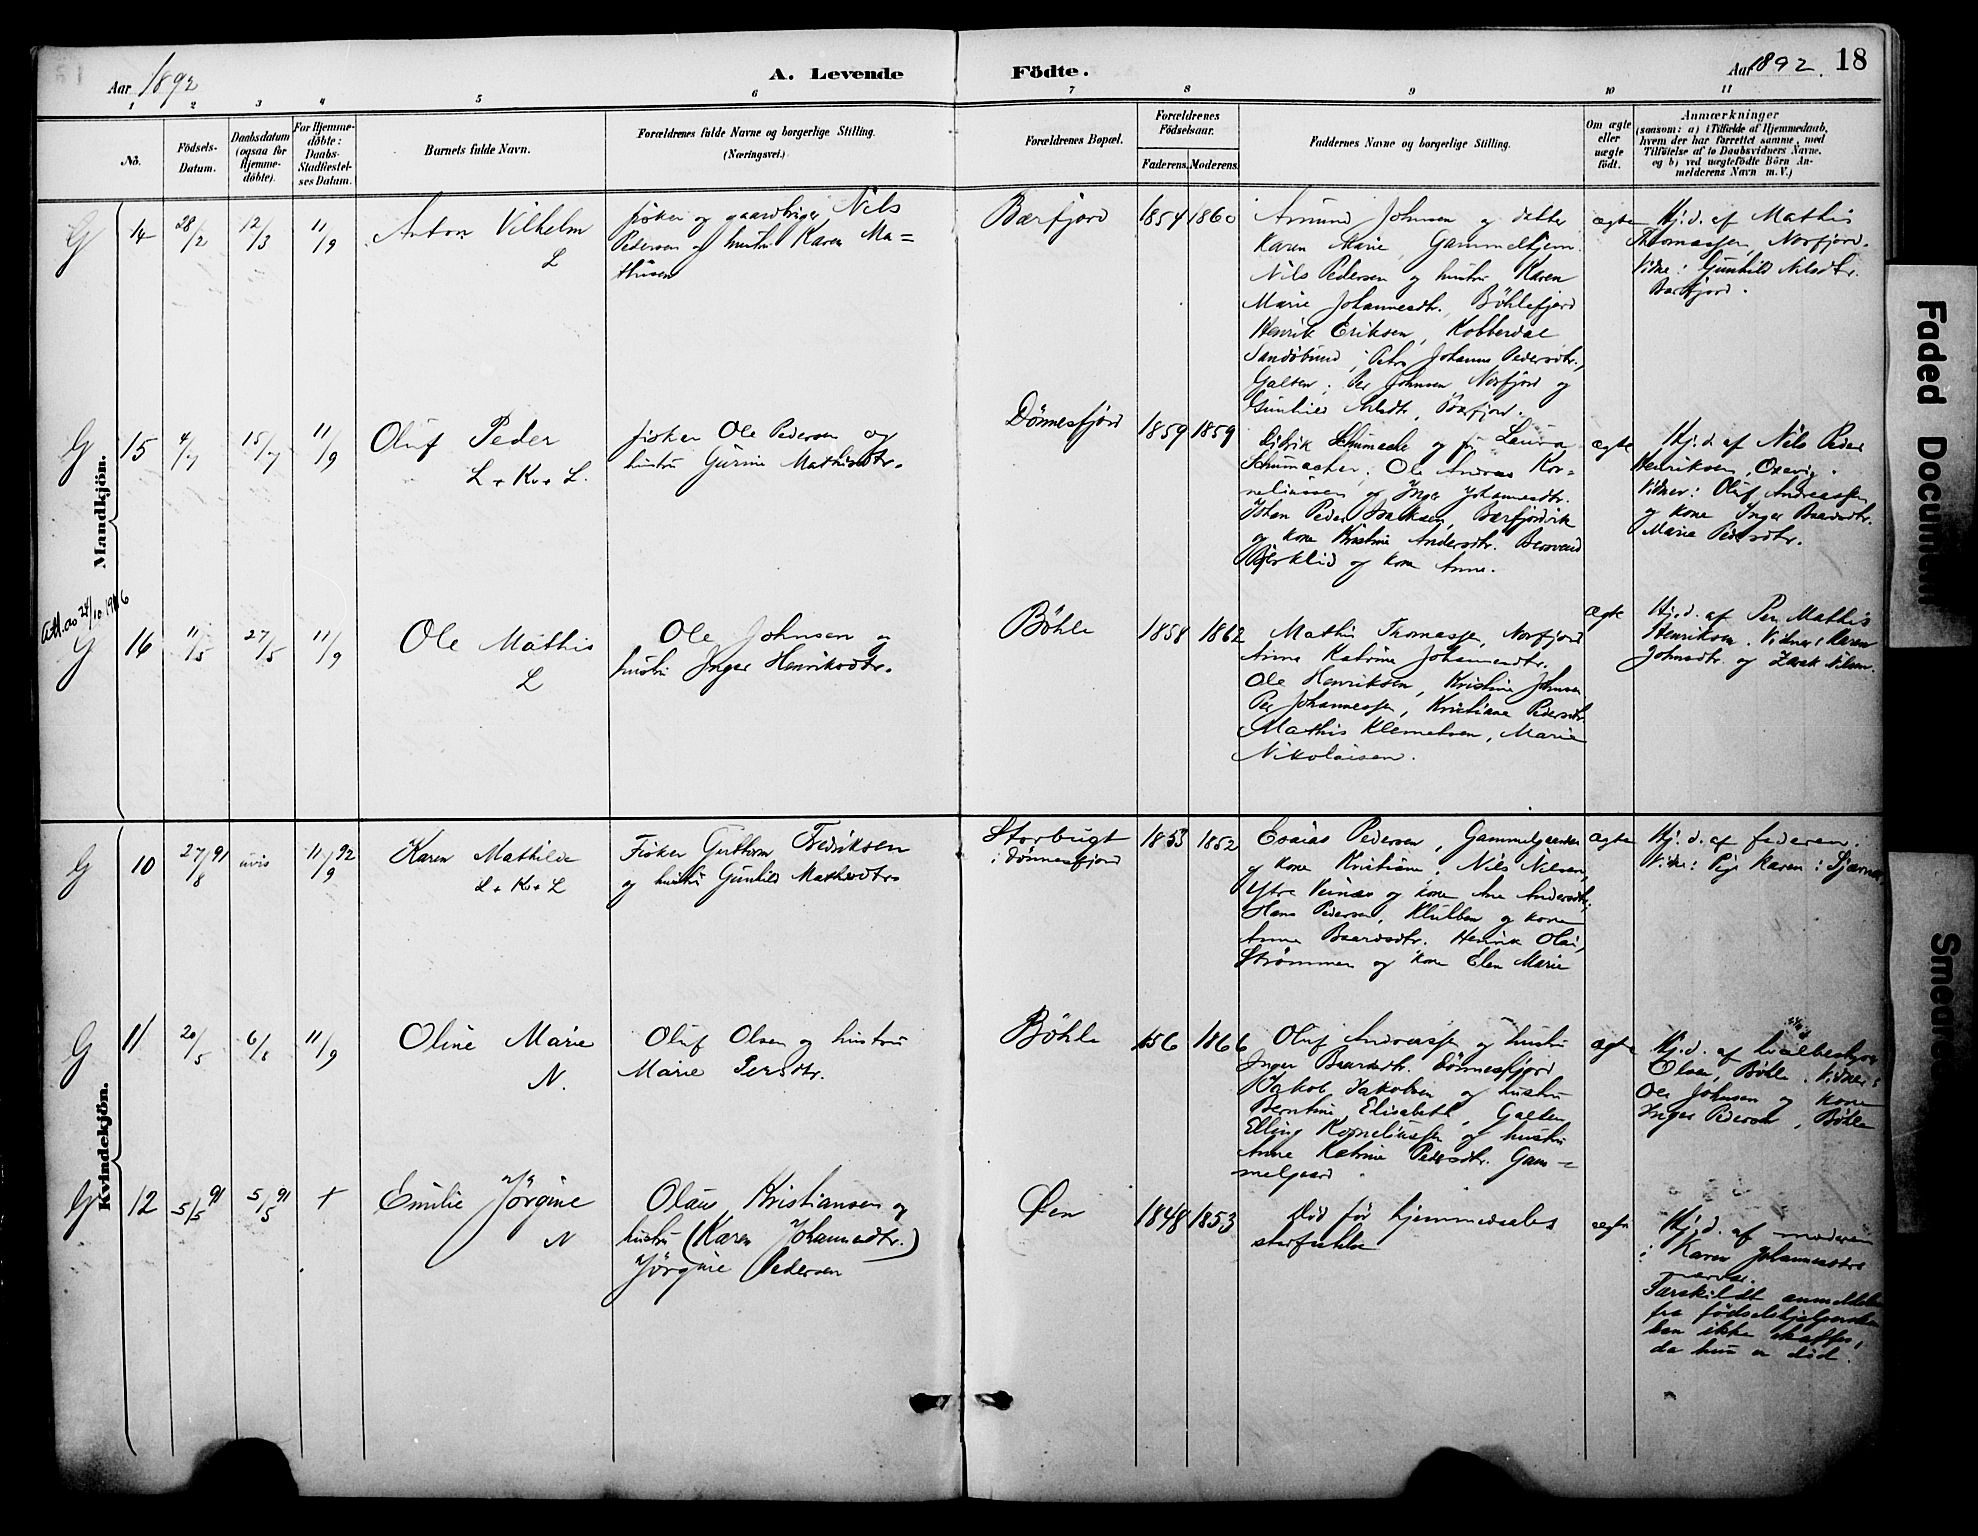 Aar 1892
A. Levende
Födte.
Aar 1892. 18
1 2 3 4 5 6 7 8 9 10 11
No.
Födsels-
Datum.
Daabsdatum
(ogsaa for
Hjemme-
döbte).
For Hjemme-
döbte:
Daabs-
Stadfæstel-
ses Datum.
Barnets fulde Navn.
Forældrenes fulde Navne og borgerlige Stilling.
(Næringsvei.)
Forældrenes Bopæl.
Forældrenes
Födselsaar.
Faderens. Moderens.
Faddernes Navne og borgerlige Stilling.
Om ægte
eller
uægte
födt.
Anmærkninger
(saasom: a) i Tilfælde af Hjemmedaab,
hvem der har forrettet samme, med
Tilföielse af to Daabsvidners Navne,
og b) ved uægtefödte Börn An-
melderens Navn m. V.)
Mandkjön.
G 14 28/2 12/3 11/9
Anton Vilhelm
L
fisker og gaardbruger Nils
Pedersen og hustru Karen Ma=
thisen
Bærfjord
1854 1860
Amund Johnsen og datter
Karen Marie, Gammelhjem.
Nils Pedersen og hustru Karen
Marie Johannesdtr. Böhlefjord
Henrik Eriksen, Kobberdal
Sandöbund, Petra Johanne Pedersdtr.,
Galten. Per Johnsen Norfjord og
Gunhild Nilsdtr, Bærfjord.
ægte
Hj.d. af Mathis
Thomassen, Norfjord.
Vidne: Gunhild Nilsdtr.
Bærfjord.
G 15 4/7 15/7 11/9
Oluf Peder
L + Kv + L.
fisker Ole Pedersen og
hustru Gurine Mathisdtr.
Dönnesfjord
1859 1859
Didrik Schumacher og fru Laura
Schumacher, Ole Andreas Kor=
neliussen og Inger Johannesdtr.
Johan Peder Isaksen, Bærfjordvik
og kone Kristine Andersdtr.
Bjerklid og kone Anne.
ægte
Hj.d. af Nils Peder
Henriksen, Oxevig.
Vidner: Oluf Andreassen
og kone Inger Baardsdtr.
Marie Pedersdtr.
G 16 11/5 27/5 11/9
Ole Mathis
L
Ole Johnsen og
hustru Inger Henriksdtr.
Böhle
1858 1862
Mathis Thomassen, Norfjord
Anne Katrine Johannesdtr.
Ole Henriksen, Kristine Johnsen
Per Johannessen, Kristiane Pedersdtr.
Mathis Klemetsen, Marie
Nikolaisen.
ægte
Hj.d. af Per Mathis
Henriksen. Vidner: Karen
Johnsdtr. og Isak Nilsen.
Kvindekjön.
G 10 27/8 91 uvis 11/9 92
Karen Mathilde
L + Kv + L
Fisker Guttorm Fredriksen
og hustru Gunhild Mathisdtr
Storbugt
i Dönnesfjord
1853 1852
Esaias Pedersen, Gammelgaarden
og kone Kristiane, Nils Nilsen,
Ytre Veines og kone Ane Andersdtr,
Hans Pedersen, Klubben og kone
Anne Baardsdtr. Henrik Olai,
Strömmen og kone Elen Marie
ægte
Hj.d. af faderen.
Vidne: Pige Karen i Stjernö.
G 11 20/5 6/6 11/9
Oline Marie
N.
Oluf Olsen og hustru
Marie Persdtr.
Böhle
1856 1866
Oluf Andreassen og hustru
Inger Baardsdtr. Dönnesfjord
Jakob Jakobsen og hustru
Berntine Elisabeth, Galten
Elling Korneliussen og hustru
Anne Katrine Pedersdtr. Gam=
melgaard
ægte
Olsen, Böhle. Vidner:
Ole Johnsen og kone
Inger Pedersen, Böhle
G 12 5/5 91 5/5 91 +
Emilie Jörgine
N
Olaus Kristiansen og
hustru (Karen Johannesdtr.)
Jörgine Pedersen
Öen
1848 1853
död för hjemmedaabs
stadfæstelse
ægte
Hj.d. af moderen
i Karen Johannesdtrs
nærvær.
Særskildt anmeldelse
fra födselshjælpersken
kan ikke skaffes,
da hun er död.
Faded Document
Smeared